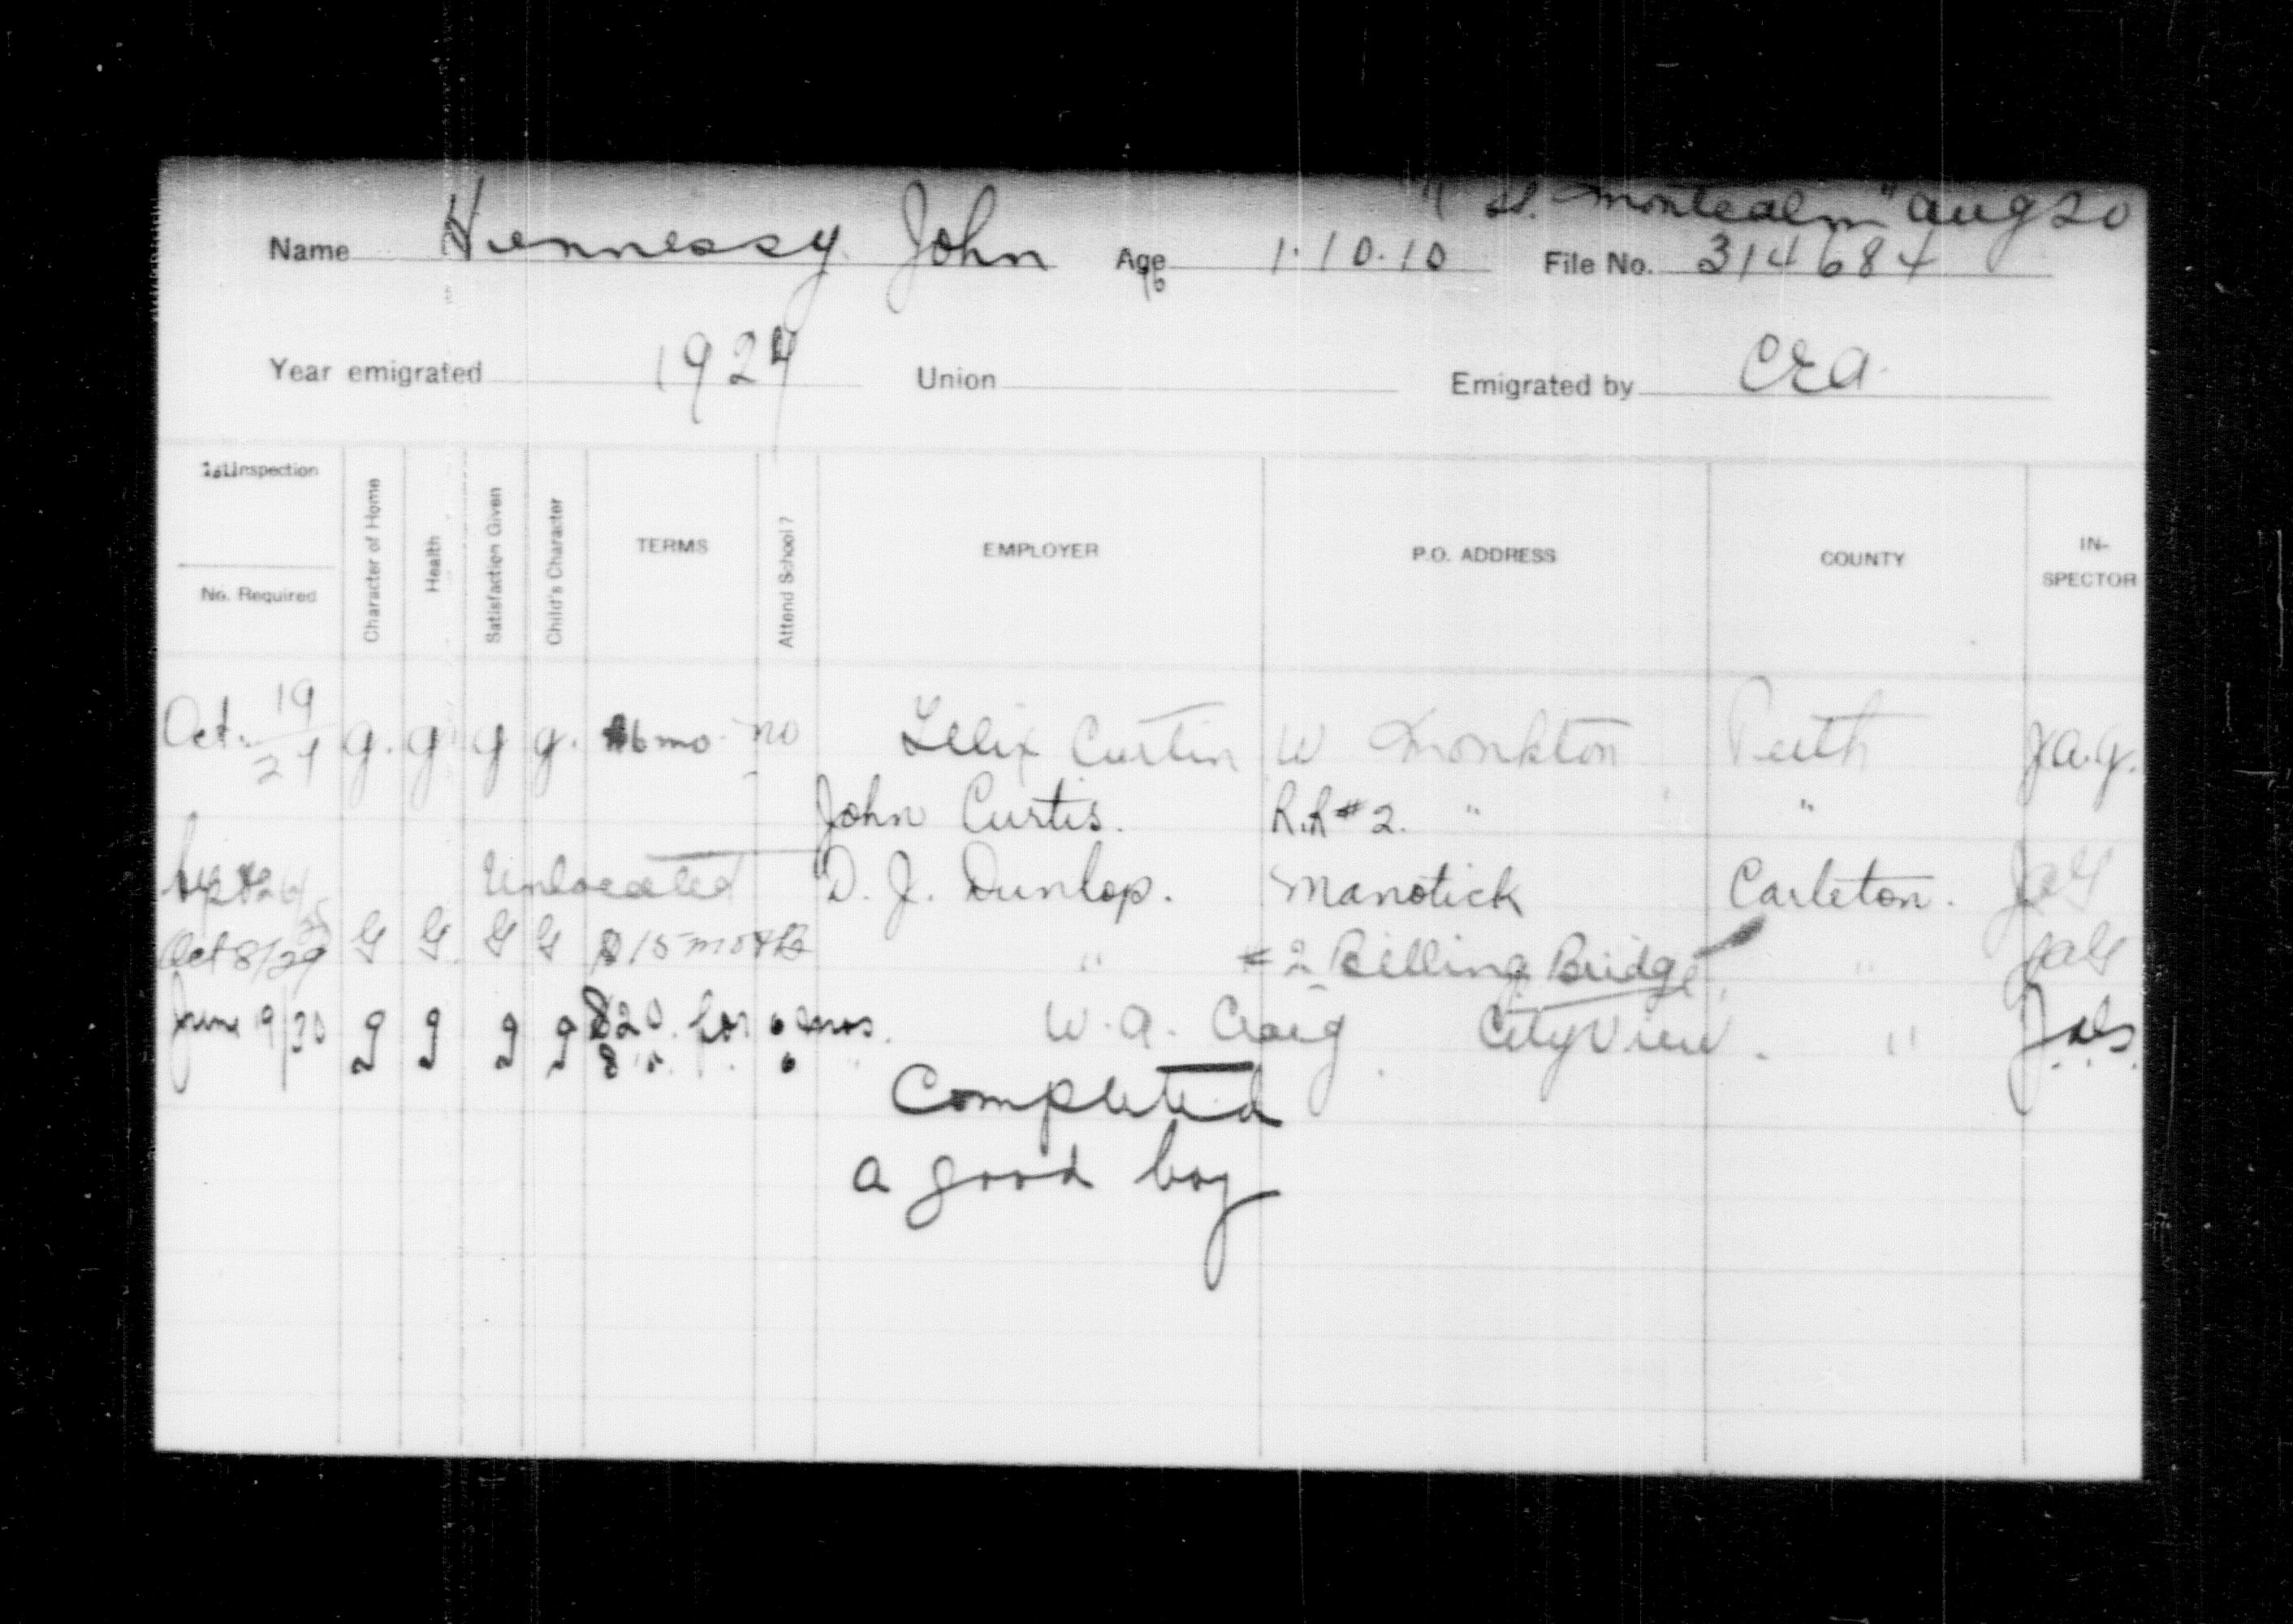 "SS. Montcalm" Aug 20
Name Hennessy John Age 1.10.10 File No. 314684
Year emigrated 1927 Union Emigrated by CEA
1st Inspection
No. Required
Character of Home
Health
Satisfaction Given
Child's Character
TERMS
Attend School?
EMPLOYER
P.O. ADDRESS
COUNTY
IN-
SPECTOR
Oct. 19 g. g g g. 6 mo no Felix Curtin W Monkton Perth J.A.G.
John Curtis. R.R #2. " "
Unlocated D. J. Dunlop. Manotick Carleton.
Oct 8/29 G G. G G $15 month " #2 Billing Bridge "
June 19/30 g g g g $20. for 6 mos. W. A. Craig City View. "
Completed
a good boy